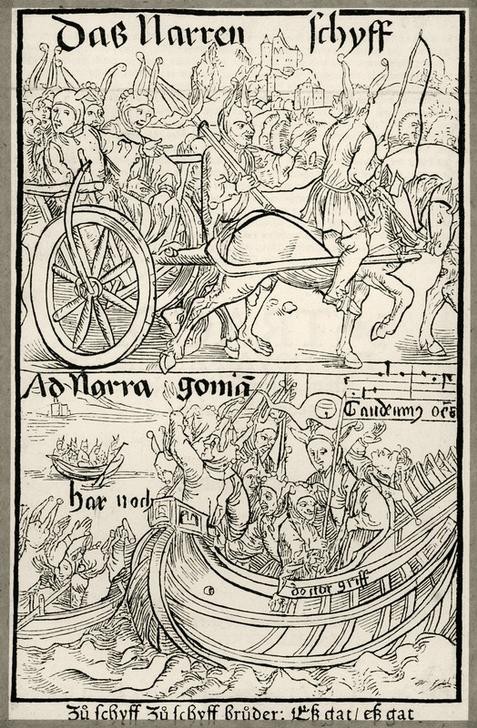 Daß Narren schyff
Ad Narragoniā
Gaudeamꝰ oēs
har noch
doctor griff
Zů schyff Zů schyff brůder: Eß gat / eß gat